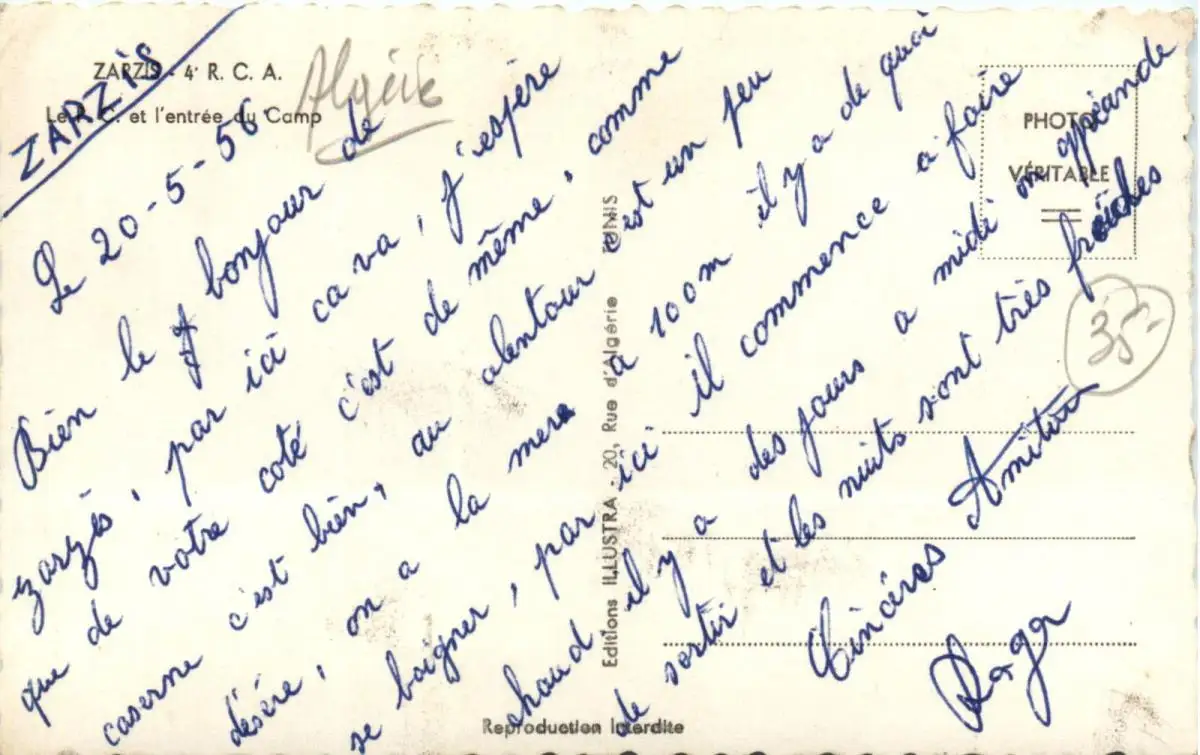 ZARZIS - 4e R. C. A.
Le P. C. et l'entrée du Camp
Algérie
PHOTO
VÉRITABLE
35-
Editions ILLUSTRA - 20, Rue d'Algérie TUNIS
Reproduction Interdite
ZARZIS
Le 20-5-56
Bien le bonjour de
zarzis, par ici ca va, j'espère
que de votre coté c'est de même, comme
caserne c'est bien, au alentour c'est un peu
désére, on a la mere a 100m il y a de quoi
se baigner, par ici il commence a faire
chaud il y a des jours a midi on
de sortir et les nuits sont très fraîches
Cincéres Amitiés
Roger